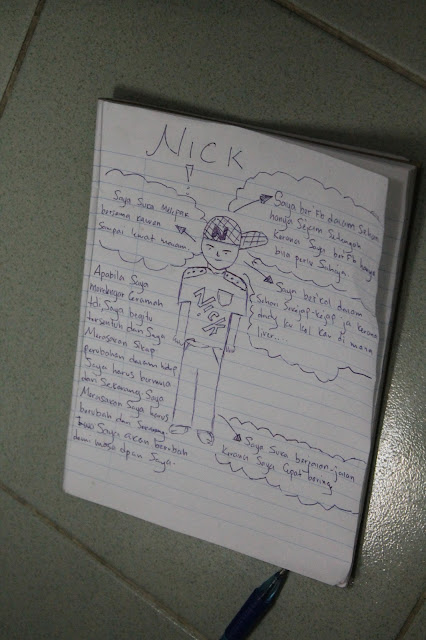 NICK
Saya suka melepak
bersama kawan
sampai lewat malam
Saya ber Fb dalam sehari
hanya sejam setengah
kerana Saya ber Fb hanya
bila perlu Sahaja.
N
NICK
Saya ber'cel dalam
sehari sekejap-kejap je kerana
daddy ku
liver...
Apabila Saya
mendengar Ceramah
tdi, Saya begitu
tersentuh dan Saya
Merasakan Sikap
perubahan dalam hidup
Saya harus bermula
dari Sekarang. Saya
Merasakan Saya harus
berubah dari Sekarang
Saya akan berubah
demi masa dpan Saya.
Saya Suka berjalan-jalan
kerana Saya Cepat boring